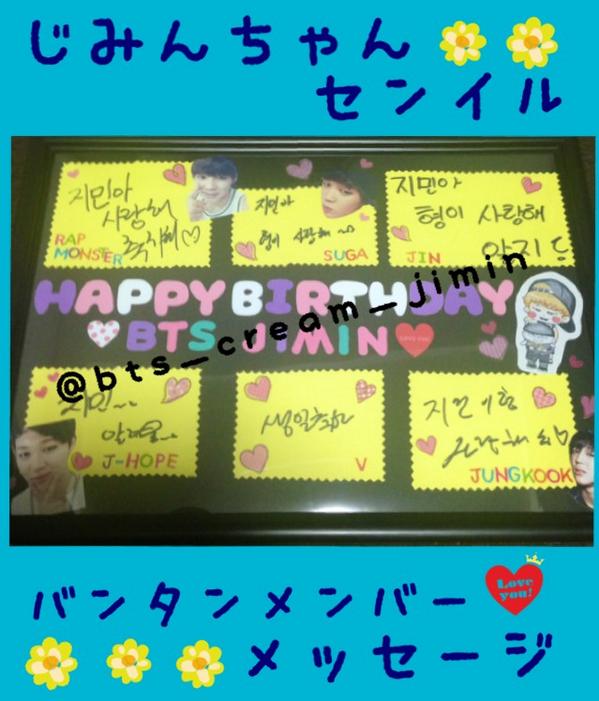 じみんちゃん
センイル
지민아
사랑해
축하해♡
RAP
MONSTER
지민아
형이 사랑해~♡
SUGA
지민아
형이 사랑해
알지
JIN
HAPPY BIRTHDAY
BTS JIMIN
@bts_cream_jimin
지민~
J-HOPE
생일축하
V
JUNGKOOK
バンタンメンバー
Love
you!
メッセージ